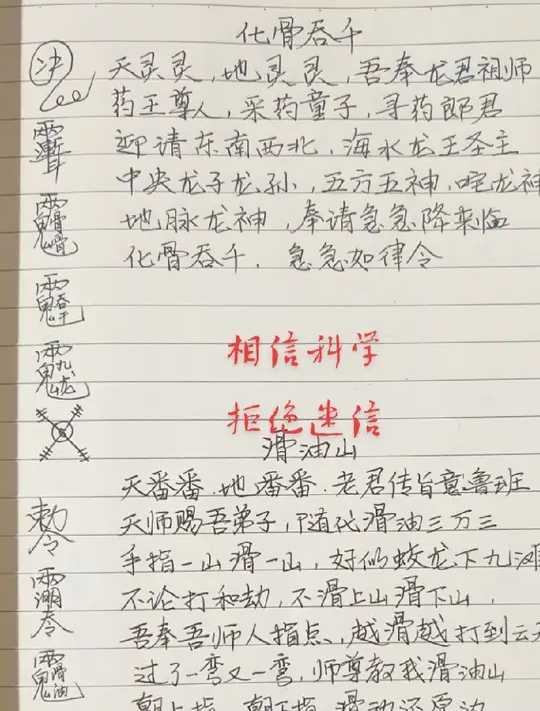 化骨吞千
冲
天灵灵，地灵灵，吾奉龙君祖师
药王尊人，采药童子，寻药郎君
迎请东南西北，海水龙王圣主
中央龙子龙孙，五方五神，龙神
地脉龙神，奉请急急降来临
化骨吞千．急急如律令
相信科学
拒绝迷信
滑油山
天番番．地番番．老君传旨意鲁班
敕令
天师赐吾弟子，滑油三万三
手指一山滑一山，好似蛟龙下九滩
不论打和劫，不滑上山滑下山，
吾奉吾师人指点，越滑越打到云天
过了一弯又一弯，师尊教我滑油山